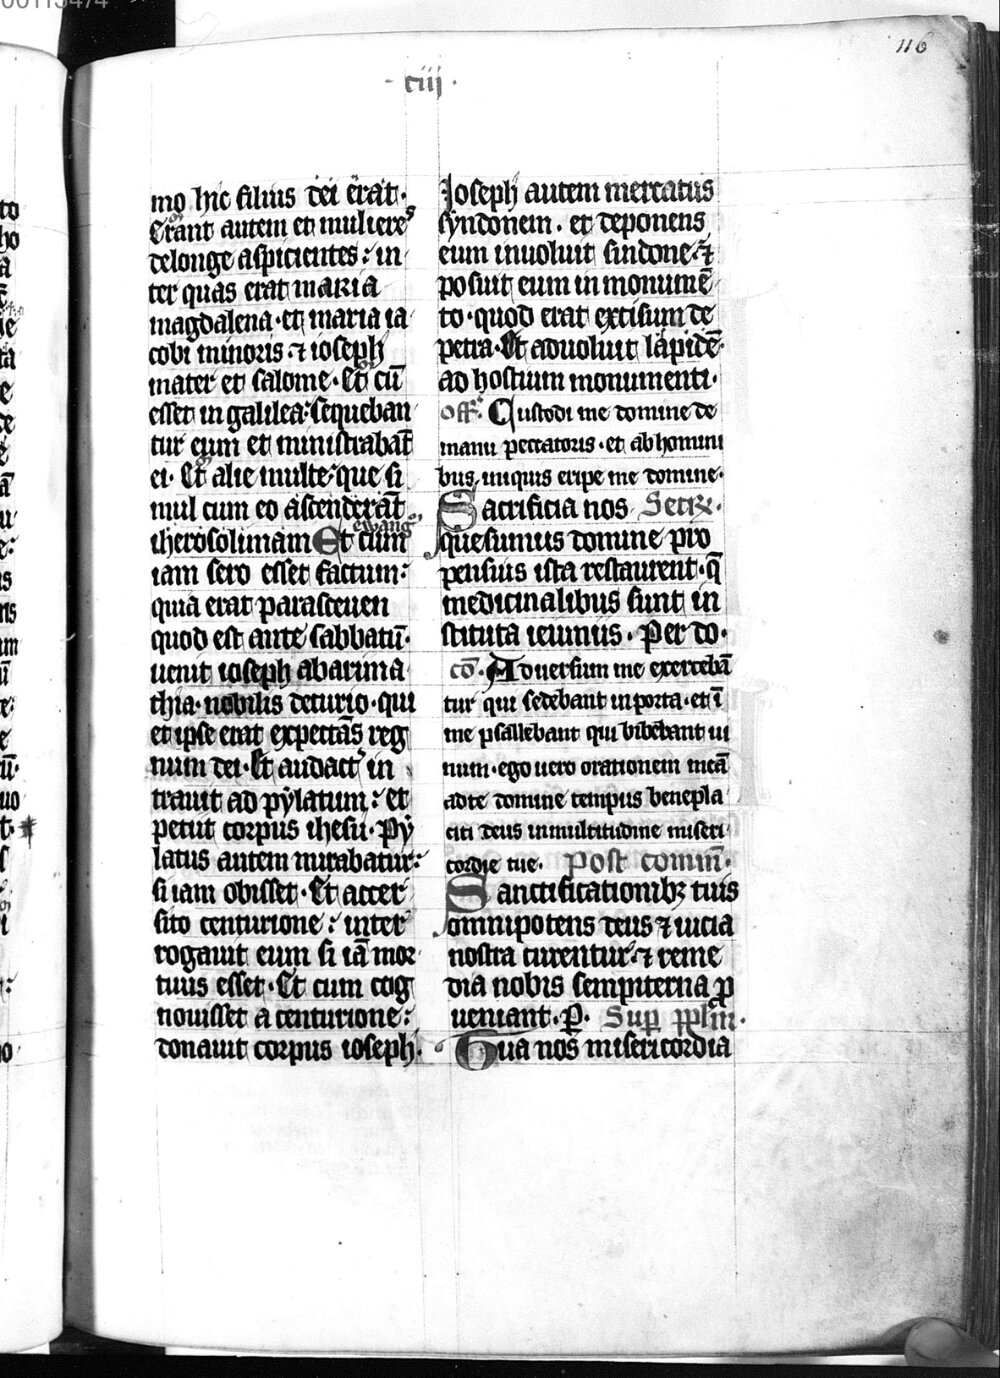 116
· ciij ·
mo hic filius dei erat.
Erant autem et mulieres
delonge aspicientes: in
ter quas erat maria
magdalena. et maria ia
cobi minoris ⁊ ioseph
mater et salome. Et cū
esset in galilea: sequeban
tur eum et ministrabāt
ei. Et alie multe: que si
mul cum eo ascenderāt
iherosolimam Et cum
ewanḡ
iam sero esset factum:
quia erat parasceuen
quod est ante sabbatū.
uenit ioseph abarima
thia. nobilis decurio. qui
et ipse erat expectās reg
num dei. Et audact̉ in
trauit ad pylatum: et
petiit corpus ihesu. Py
latus autem mirabatur:
si iam obisset. Et accer
sito centurione: inter
rogauit eum si iā mor
tuus esset. Et cum cog
nouisset a centurione:
donauit corpus ioseph.
Ioseph autem mercatus
syndonem. et deponens
eum inuoluit sindone. ⁊
posuit eum in monumē
to. quod erat excisum de
petra. Et aduoluit lapidē
ad hostium monumenti.
off̄. Custodi me domine de
manu peccatoris. et ab homini
bus iniquis eripe me domine.
Sacrificia nos Secrꝫ.
quesumus domine pro
pensius ista restaurent. q̄
medicinalibus sunt in
stituta ieiuniis. Per do.
cō. Aduersum me exercebā
tur qui sedebant in porta. et ī
me psallebant qui bibebant ui
num. ego uero orationem meā
adte domine tempus benepla
citi deus in multitudine miseri
cordie tue. Post commū.
Sanctificationibꝫ tuis
omnipotens deus ⁊ uicia
nostra curentur. ⁊ reme
dia nobis sempiterna ꝓ
ueniant. ꝑ. Suꝑ pplm̄.
Tua nos misericordia